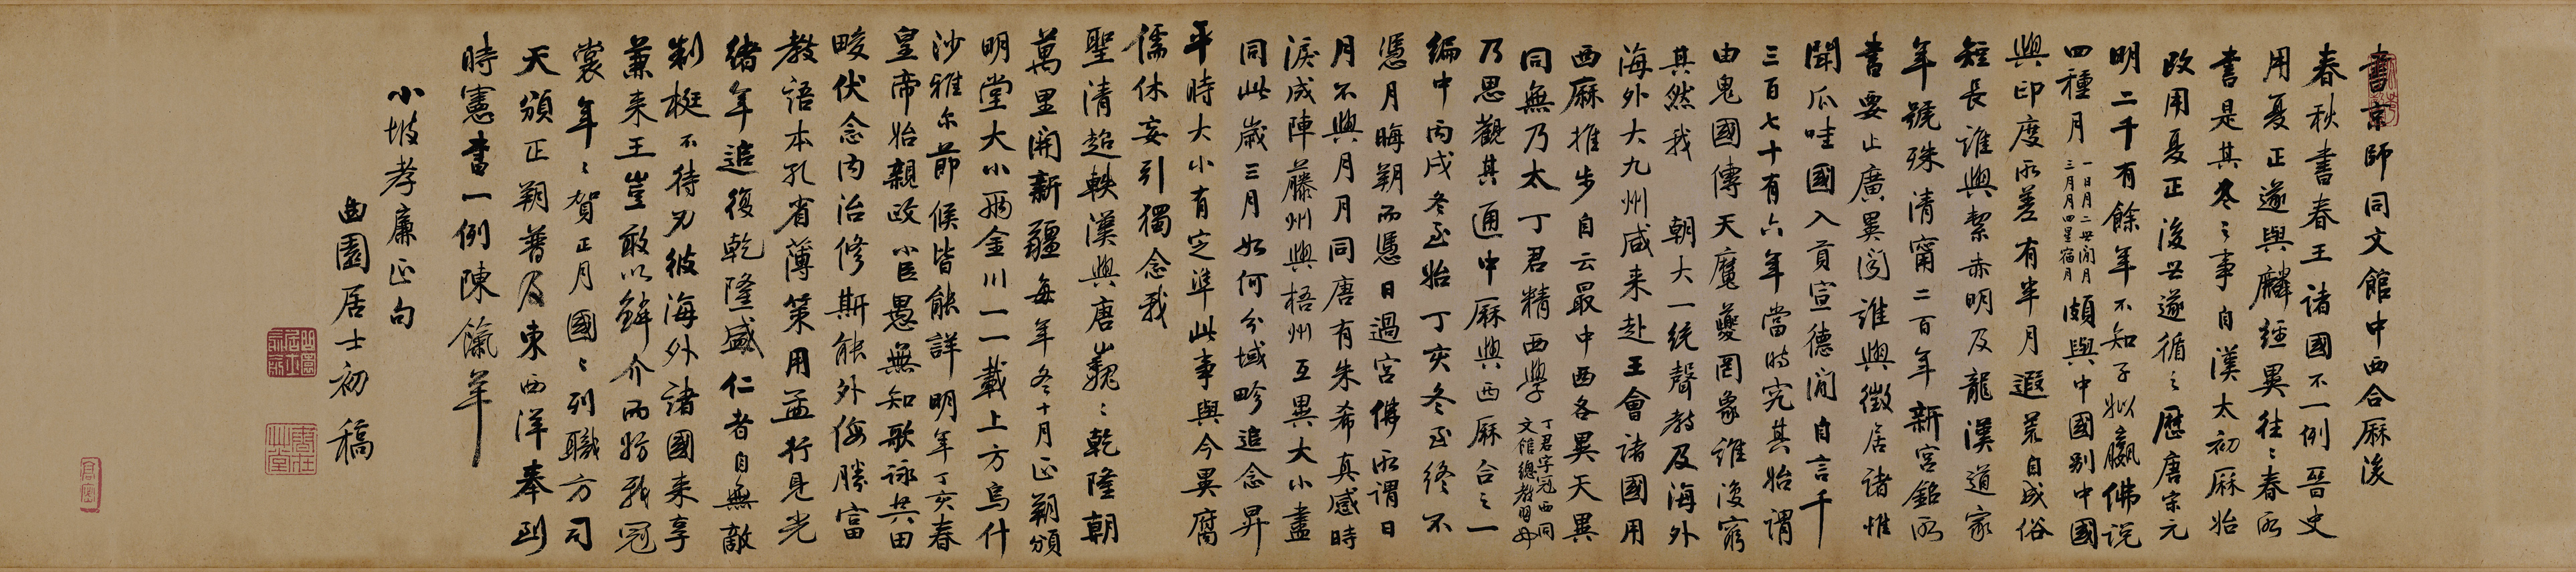 書京師同文館中西合厤後
春秋書春王諸國不一例晉史
用夏正遂與麟經異往〻春所
書是其冬之事自漢太初厤始
改用夏正後世遂循之歷唐宋元
明二千有餘年不知子姒嬴佛說
四種月一日月二世間月三月月四星宿月頗與中國別中國
與印度所差有半月遐荒自成俗
短長誰與絜赤明及龍漢道家
年號殊清甯二百年新宮銘所
書要止廣異聞誰與徵居諸惟
聞瓜哇國入貢宣德間自言千
三百七十有六年當時究其始謂
由鬼國傳天魔夔罔象誰復窮
其然我 朝大一統聲教及海外
海外大九州咸来赴王會諸國用
西厤推步自云最中西各異天異
同無乃太丁君精西學丁君字冠西同文館總教習毋
乃思觀其通中厤與西厤合之一
編中丙戌冬至始丁亥冬至終不
憑月晦朔而憑日過宮佛所謂日
月不與月月同唐有朱希真感時
淚成陣藤州與梧州互異大小盡
同此歲三月如何分域畛追念昇
平時大小有定準此事與今異腐
儒休妄引獨念我
聖清超軼漢與唐巍〻乾隆朝
萬里開新疆每年冬十月正朔頒
明堂大小兩金川一一載上方烏什
沙雅尔節候皆能詳明年丁亥春
皇帝始親政小臣愚無知歌詠共田
畯伏念内治修斯能外侮勝富
教語本孔省薄策用孟行見光
緒年追復乾隆盛仁者自無敵
制梃不待刃彼海外諸國来享
兼来王豈敢以鱗介而妨我冠
裳年〻賀正月國〻列職方司
天頒正朔普及東西洋奉到
時憲書一例陳餼羊
小坡孝廉正句
曲園居士初稿